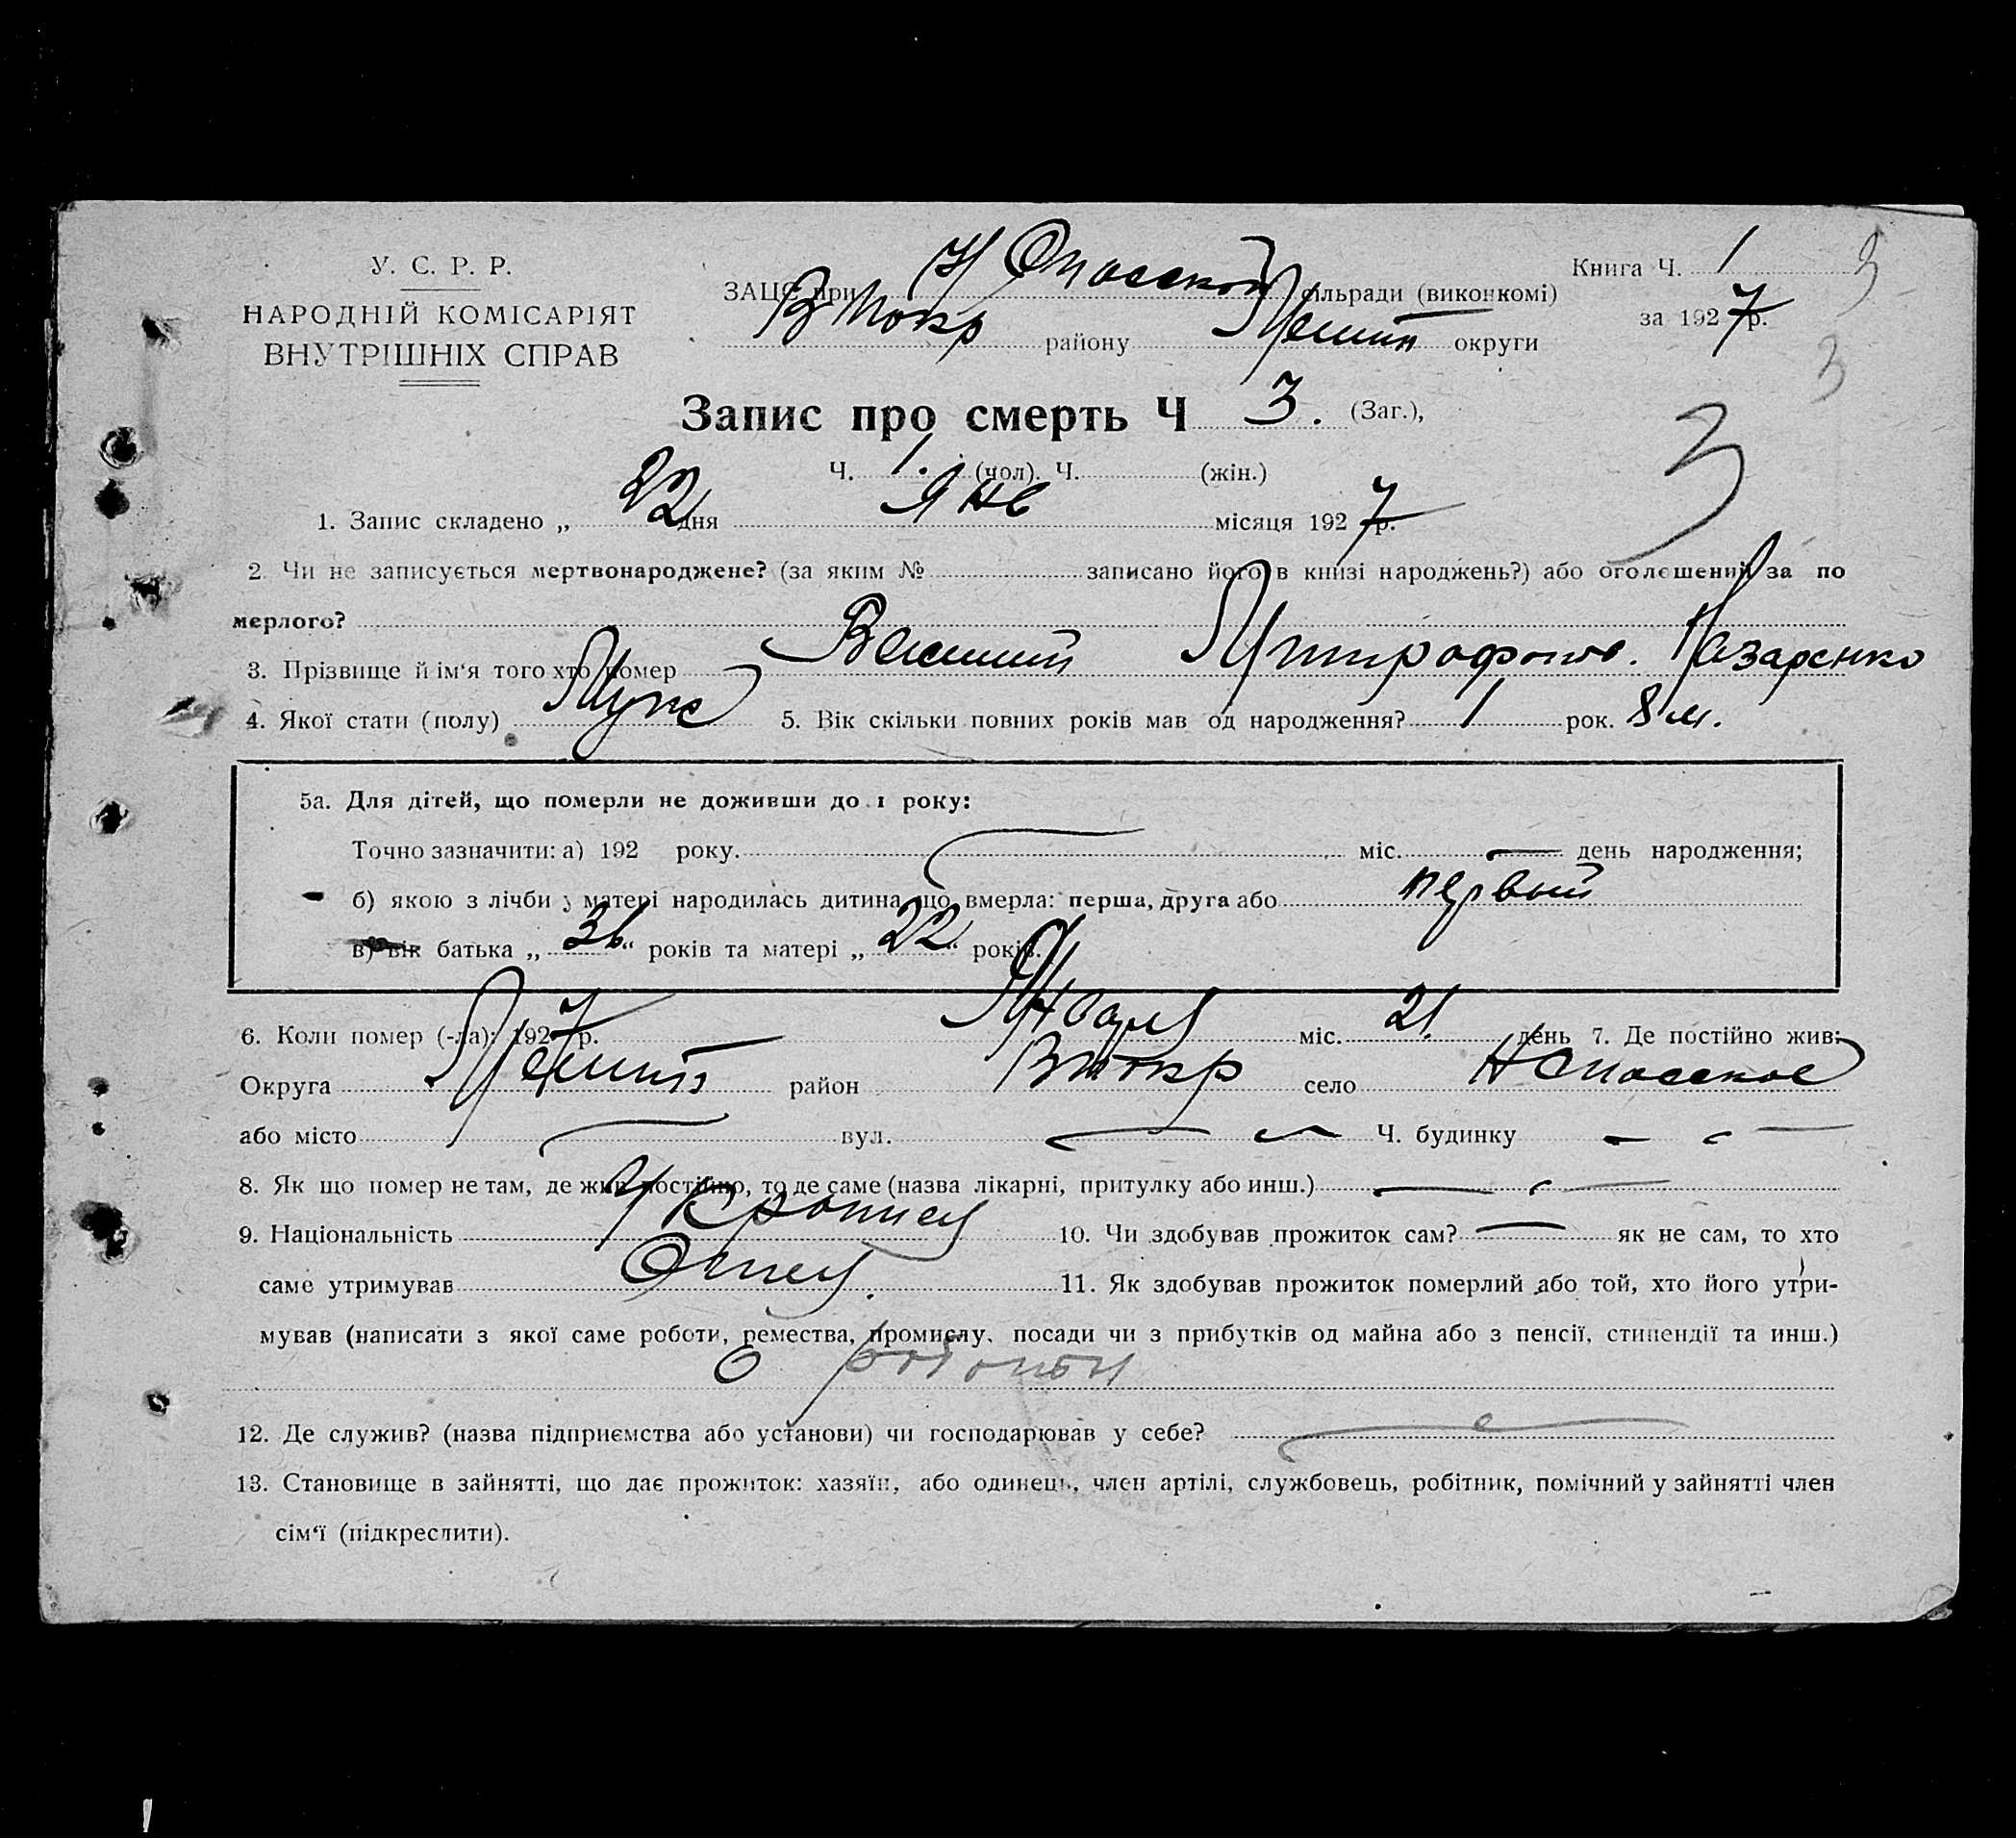 У. С. Р. Р.
НАРОДНІЙ КОМІСАРІЯТ
ВНУТРІШНІХ СПРАВ
ЗАЦС при Н Спасской сільради (виконкомі)
В Токр району Мелит округи
Книга Ч. 1
за 1927 р.
3
3
Запис про смерть Ч 3. (Заг.),
3
Ч. 1. (чол). Ч. (жін.)
1. Запис складено „ 22 дня Янв місяця 1927 р.
2. Чи не записується мертвонароджене? (за яким № записано його в книзі народжень?) або оголешений за по
мерлого?
3. Прізвище й ім'я того хто помер Василий Митрофанов. Назаренко
4. Якої стати (полу) Муж 5. Вік скільки повних років мав од народження? 1 рок. 8 м.
5а. Для дітей, що померли не доживши до 1 року:
Точно зазначити: а) 192 року. міс. день народження;
б) якою з лічби у матері народилась дитина, що вмерла: перша, друга або первый
в) вік батька „ 36 “ років та матері „ 22 “ років.
6. Коли помер (-ла): 1927 р. Января міс. 21. день 7. Де постійно жив:
Округа Мелит район В Токр село Н Спасское
або місто вул. Ч. будинку
8. Як що помер не там, де жив постійно, то де саме (назва лікарні, притулку або инш.)
9. Національність 10. Чи здобував прожиток сам? як не сам, то хто
саме утримував Отец. 11. Як здобував прожиток померлий або той, хто його утри-
мував (написати з якої саме роботи, ремества, промислу, посади чи з прибутків од майна або з пенсії, стипендії та инш.)
12. Де служив? (назва підприємства або установи) чи господарював у себе?
13. Становище в зайнятті, що дає прожиток: хазяїн, або одинець, член артілі, службовець, робітник, помічний у зайнятті член
сім'ї (підкреслити).